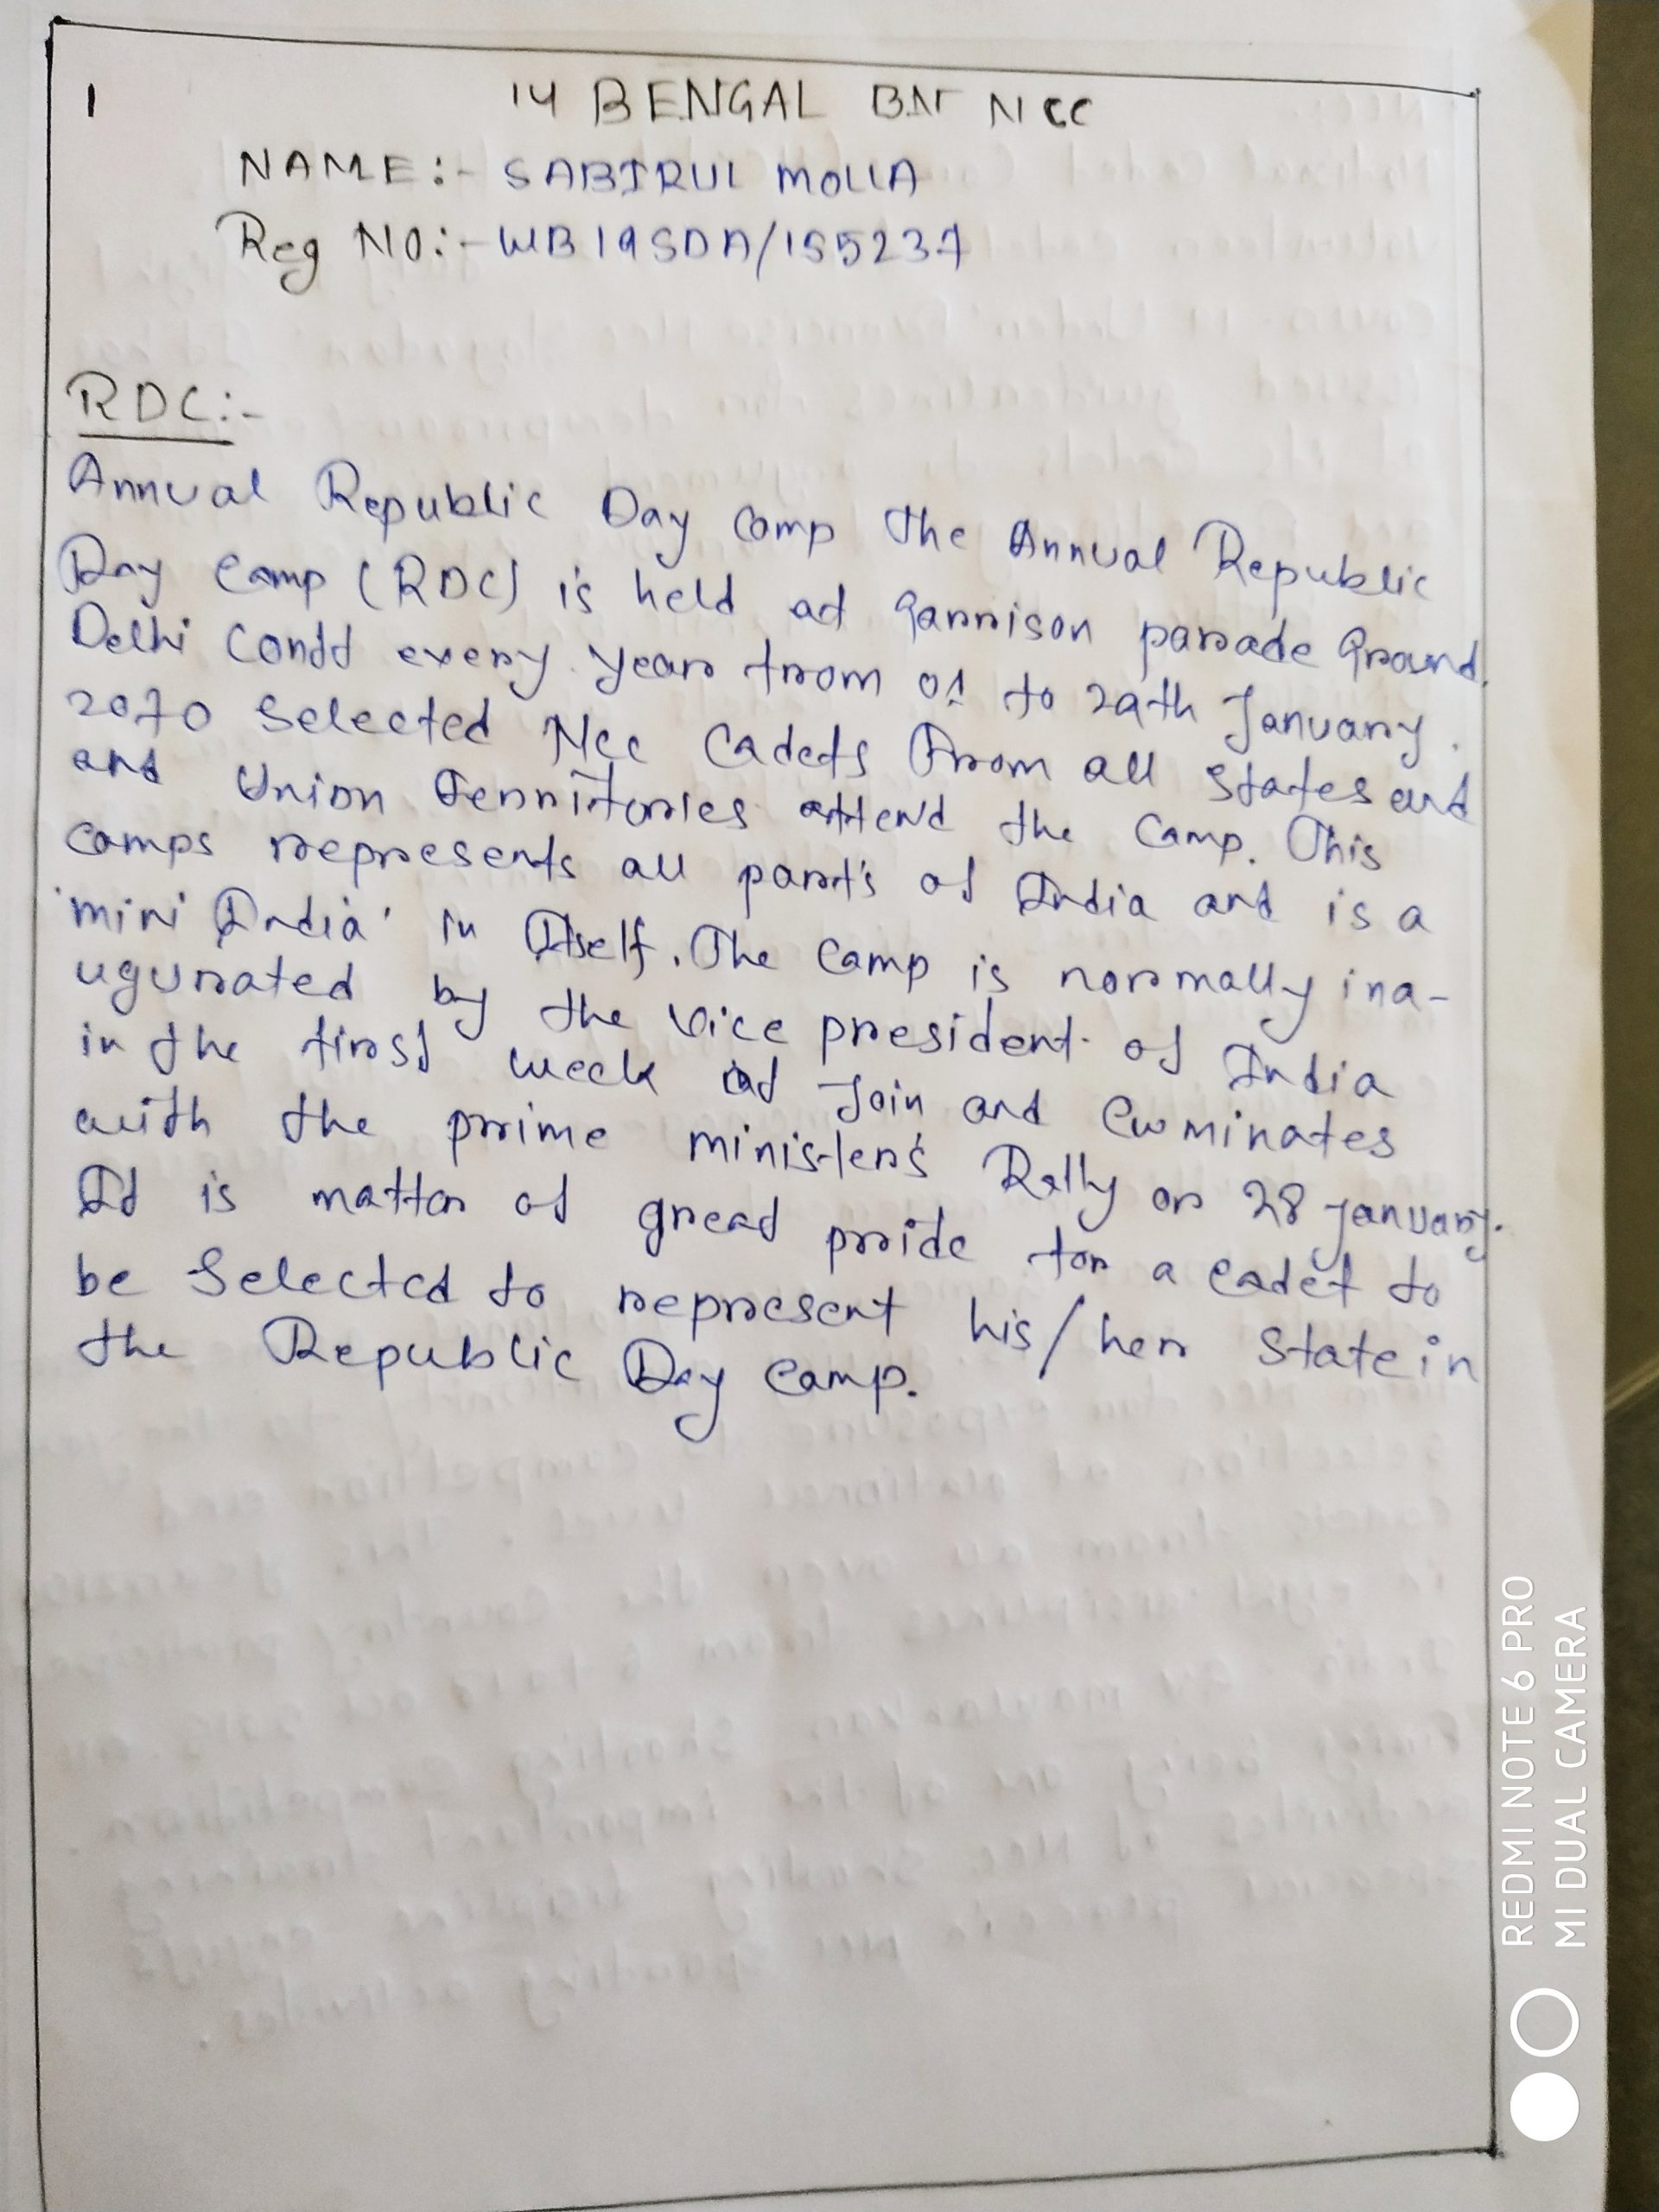 1
14 BENGAL BN NCC
NAME:- SABIRUL MOLLA
Reg NO:- WB19SDA/155237
RDC:-
Annual Republic Day Camp The Annual Republic
Day Camp (RDC) is held at Garrison parade Ground.
Delhi Contd every year from 01 to 29th January.
2070 Selected Ncc Cadets From all States and
and Union Territories attend the Camp. This
camps represents all part's of India and is a
'mini India' in Itself. The Camp is normally ina-
ugurated by the Vice president of India
in the first week of Join and Cuminates
with the prime minister's Rally on 28 January.
It is matter of great pride for a cadet to
be Selected to represent his/her State in
the Republic Day Camp.
REDMI NOTE 6 PRO
MI DUAL CAMERA